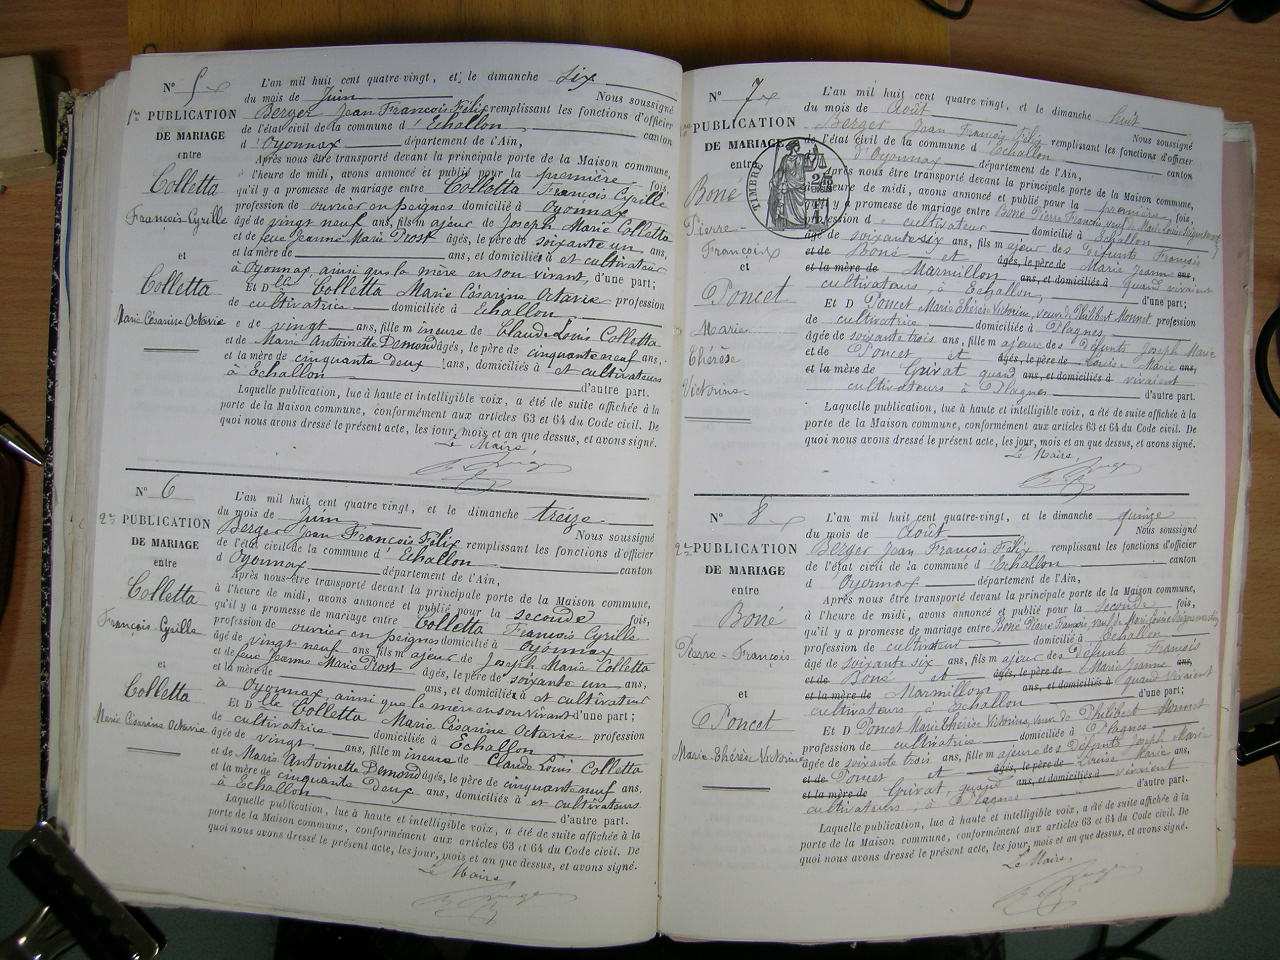 N° 5
1re PUBLICATION
DE MARIAGE
entre
Colletta
François Cyrille
et
Colletta
Marie Césarine Octavie
L'an mil huit cent quatre-vingt, et le dimanche six
du mois de Juin Nous soussigné
Berger Jean François Félix remplissant les fonctions d'officier
de l'état civil de la commune d'Echallon canton
d'Oyonnax département de l'Ain,
Après nous être transporté devant la principale porte de la Maison commune,
à l'heure de midi, avons annoncé et publié pour la première fois,
qu'il y a promesse de mariage entre Colletta François Cyrille
profession de ouvrier en peignes domicilié à Oyonnax
âgé de vingt neuf ans, fils majeur de Joseph Marie Colletta
et de feue Jeanne Marie Prost âgés, le père de soixante un ans,
et la mère de ans, et domiciliés à et cultivateur
à Oyonnax ainsi que la mère en son vivant, d'une part;
Et Dlle Colletta Marie Césarine Octavie profession
de cultivatrice domiciliée à Echallon
e de vingt ans, fille mineure de Claude Louis Colletta
et de Marie Antoinette Demond âgés, le père de cinquante neuf ans,
et la mère de cinquante deux ans, domiciliés à et cultivateurs
à Echallon d'autre part.
Laquelle publication, lue à haute et intelligible voix, a été de suite affichée à la
porte de la Maison commune, conformément aux articles 63 et 64 du Code civil. De
quoi nous avons dressé le présent acte, les jour, mois et an que dessus, et avons signé.
Le Maire,
N° 6
2e PUBLICATION
DE MARIAGE
entre
Colletta
François Cyrille
et
Colletta
Marie Césarine Octavie
L'an mil huit cent quatre-vingt, et le dimanche treize
du mois de Juin Nous soussigné
Berger Jean François Félix remplissant les fonctions d'officier
de l'état civil de la commune d'Echallon canton
d'Oyonnax département de l'Ain,
Après nous être transporté devant la principale porte de la Maison commune,
à l'heure de midi, avons annoncé et publié pour la seconde fois,
qu'il y a promesse de mariage entre Colletta François Cyrille
profession de ouvrier en peignes domicilié à Oyonnax
âgé de vingt neuf ans, fils majeur de Joseph Marie Colletta
et de feue Jeanne Marie Prost âgés, le père de soixante un ans,
et la mère de ans, et domiciliés à et cultivateur
à Oyonnax, ainsi que la mère en son vivant d'une part;
Et Dlle Colletta Marie Césarine Octavie profession
de cultivatrice domiciliée à Echallon
âgée de vingt ans, fille mineure de Claude Louis Colletta
et de Marie Antoinette Demond âgés, le père de cinquante neuf ans,
et la mère de cinquante deux ans, domiciliés à et cultivateurs
à Echallon d'autre part.
Laquelle publication, lue à haute et intelligible voix, a été de suite affichée à la
porte de la Maison commune, conformément aux articles 63 et 64 du Code civil. De
quoi nous avons dressé le présent acte, les jour, mois et an que dessus, et avons signé.
Le Maire
N° 7
PUBLICATION
DE MARIAGE
entre
Boné
Pierre-
François
et
Poncet
Marie
Thérèse
Victorine
TIMBRE
L'an mil huit cent quatre-vingt, et le dimanche huit
du mois de Août Nous soussigné
Berger Jean François Félix remplissant les fonctions d'officier
de l'état civil de la commune d'Echallon canton
d'Oyonnax département de l'Ain,
Après nous être transporté devant la principale porte de la Maison commune,
à l'heure de midi, avons annoncé et publié pour la première fois,
qu'il y a promesse de mariage entre Boné Pierre François veuf de Marie Louise
profession de cultivateur domicilié à Echallon
âgé de soixante six ans, fils majeur des défunts François
et de Boné et âgés, le père de Marie Jeanne ans,
et la mère de Marmillon ans, et domiciliés à quand vivaient
cultivateurs à Echallon, d'une part;
Et D Poncet Marie Thérèse Victorine, veuve de Philibert Monnet profession
de cultivatrice domiciliée à Plagnes
âgée de soixante trois ans, fille majeure des défunts Joseph Marie
et de Poncet et âgés, le père de Louise Marie ans,
et la mère de Grivat quand ans, et domiciliés à vivaient
cultivateurs à Plagnes d'autre part.
Laquelle publication, lue à haute et intelligible voix, a été de suite affichée à la
porte de la Maison commune, conformément aux articles 63 et 64 du Code civil. De
quoi nous avons dressé le présent acte, les jour, mois et an que dessus, et avons signé.
Le Maire,
N° 8
2e PUBLICATION
DE MARIAGE
entre
Boné
Pierre-François
et
Poncet
Marie-Thérèse Victorine
L'an mil huit cent quatre-vingt, et le dimanche quinze
du mois de Août Nous soussigné
Berger Jean François Félix remplissant les fonctions d'officier
de l'état civil de la commune d'Echallon canton
d'Oyonnax département de l'Ain,
Après nous être transporté devant la principale porte de la Maison commune,
à l'heure de midi, avons annoncé et publié pour la seconde fois,
qu'il y a promesse de mariage entre Boné Pierre François veuf de Marie Louise
profession de cultivateur domicilié à Echallon
âgé de soixante six ans, fils majeur des défunts François
et de Boné et âgés, le père de Marie Jeanne ans,
et la mère de Marmillon ans, et domiciliés à quand vivaient
cultivateurs à Echallon d'une part;
Et D Poncet Marie Thérèse Victorine, veuve de Philibert Monnet
profession de cultivatrice domiciliée à Plagnes
âgée de soixante trois ans, fille majeure des défunts Joseph Marie
et de Poncet et âgés, le père de Louise Marie ans,
et la mère de Grivat, quand ans, et domiciliés à vivaient
cultivateurs, à Plagnes d'autre part.
Laquelle publication, lue à haute et intelligible voix, a été de suite affichée à la
porte de la Maison commune, conformément aux articles 63 et 64 du Code civil. De
quoi nous avons dressé le présent acte, les jour, mois et an que dessus, et avons signé.
Le Maire,